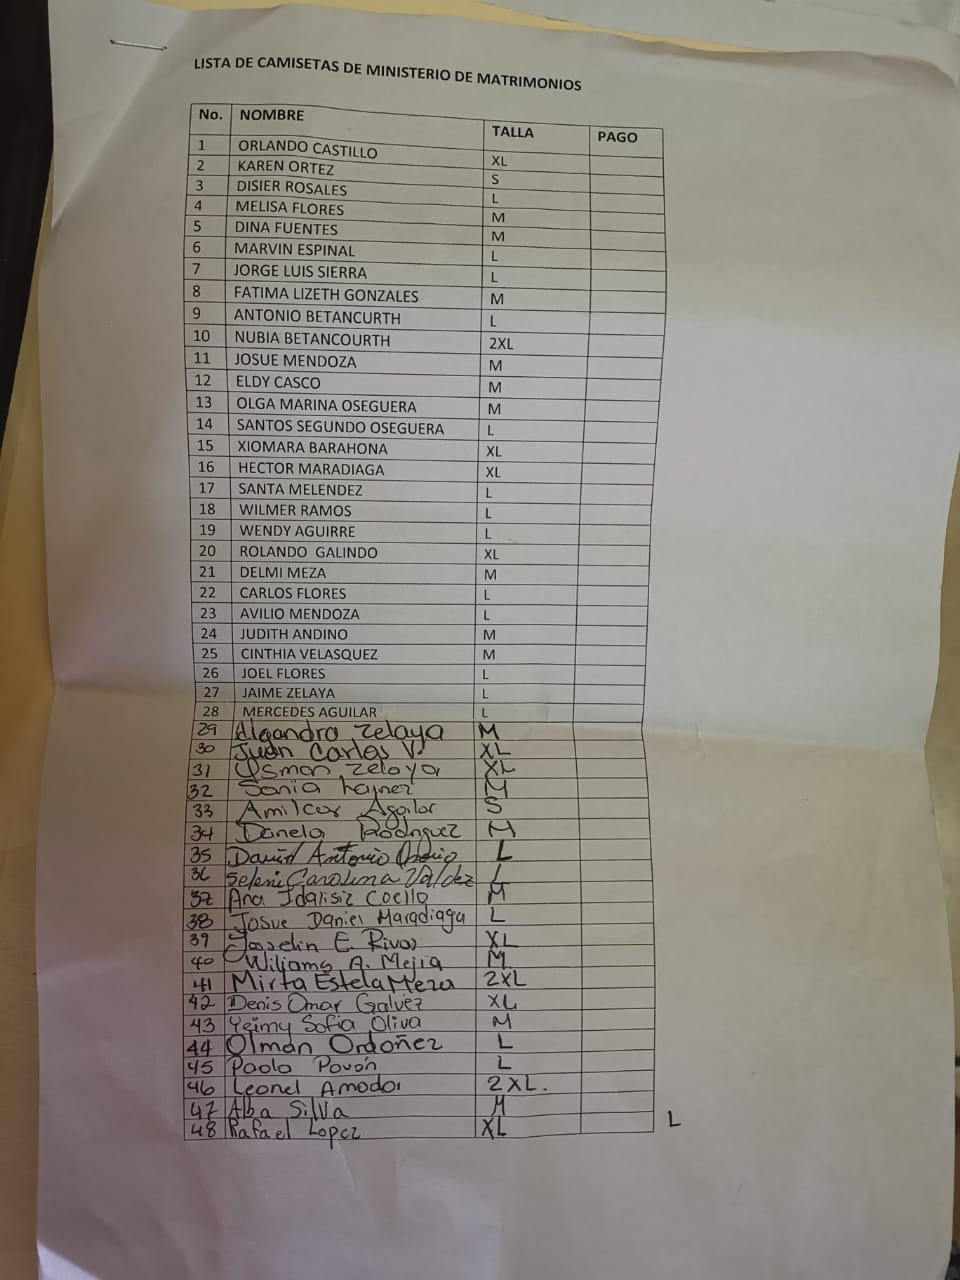 LISTA DE CAMISETAS DE MINISTERIO DE MATRIMONIOS
No. NOMBRE TALLA PAGO
1 ORLANDO CASTILLO XL
2 KAREN ORTEZ S
3 DISIER ROSALES L
4 MELISA FLORES M
5 DINA FUENTES M
6 MARVIN ESPINAL L
7 JORGE LUIS SIERRA L
8 FATIMA LIZETH GONZALES M
9 ANTONIO BETANCURTH L
10 NUBIA BETANCOURTH 2XL
11 JOSUE MENDOZA M
12 ELDY CASCO M
13 OLGA MARINA OSEGUERA M
14 SANTOS SEGUNDO OSEGUERA L
15 XIOMARA BARAHONA XL
16 HECTOR MARADIAGA XL
17 SANTA MELENDEZ L
18 WILMER RAMOS L
19 WENDY AGUIRRE L
20 ROLANDO GALINDO XL
21 DELMI MEZA M
22 CARLOS FLORES L
23 AVILIO MENDOZA L
24 JUDITH ANDINO M
25 CINTHIA VELASQUEZ M
26 JOEL FLORES L
27 JAIME ZELAYA L
28 MERCEDES AGUILAR L
29 Zelaya M
30 Juan Carlos V. XL
31 Osman Zelaya XL
32 Sonia M
33 Amilcar Aguilar S
34 Danela Rodriguez M
35 David Antonio L
36 Seleni Carolina Valdez L
37 Ana Idalisiz Coello M
38 Josue Daniel Maradiaga L
39 Josselin E. Rivas XL
40 Wiliams A. Mejia M
41 Mirta Estela Meza 2XL
42 Denis Omar Galvez XL
43 Yeimy Sofia Oliva M
44 Olman Ordoñez L
45 Paola Pavón L
46 Leonel Amador 2XL.
47 Alba Silva M
48 Rafael Lopez XL L